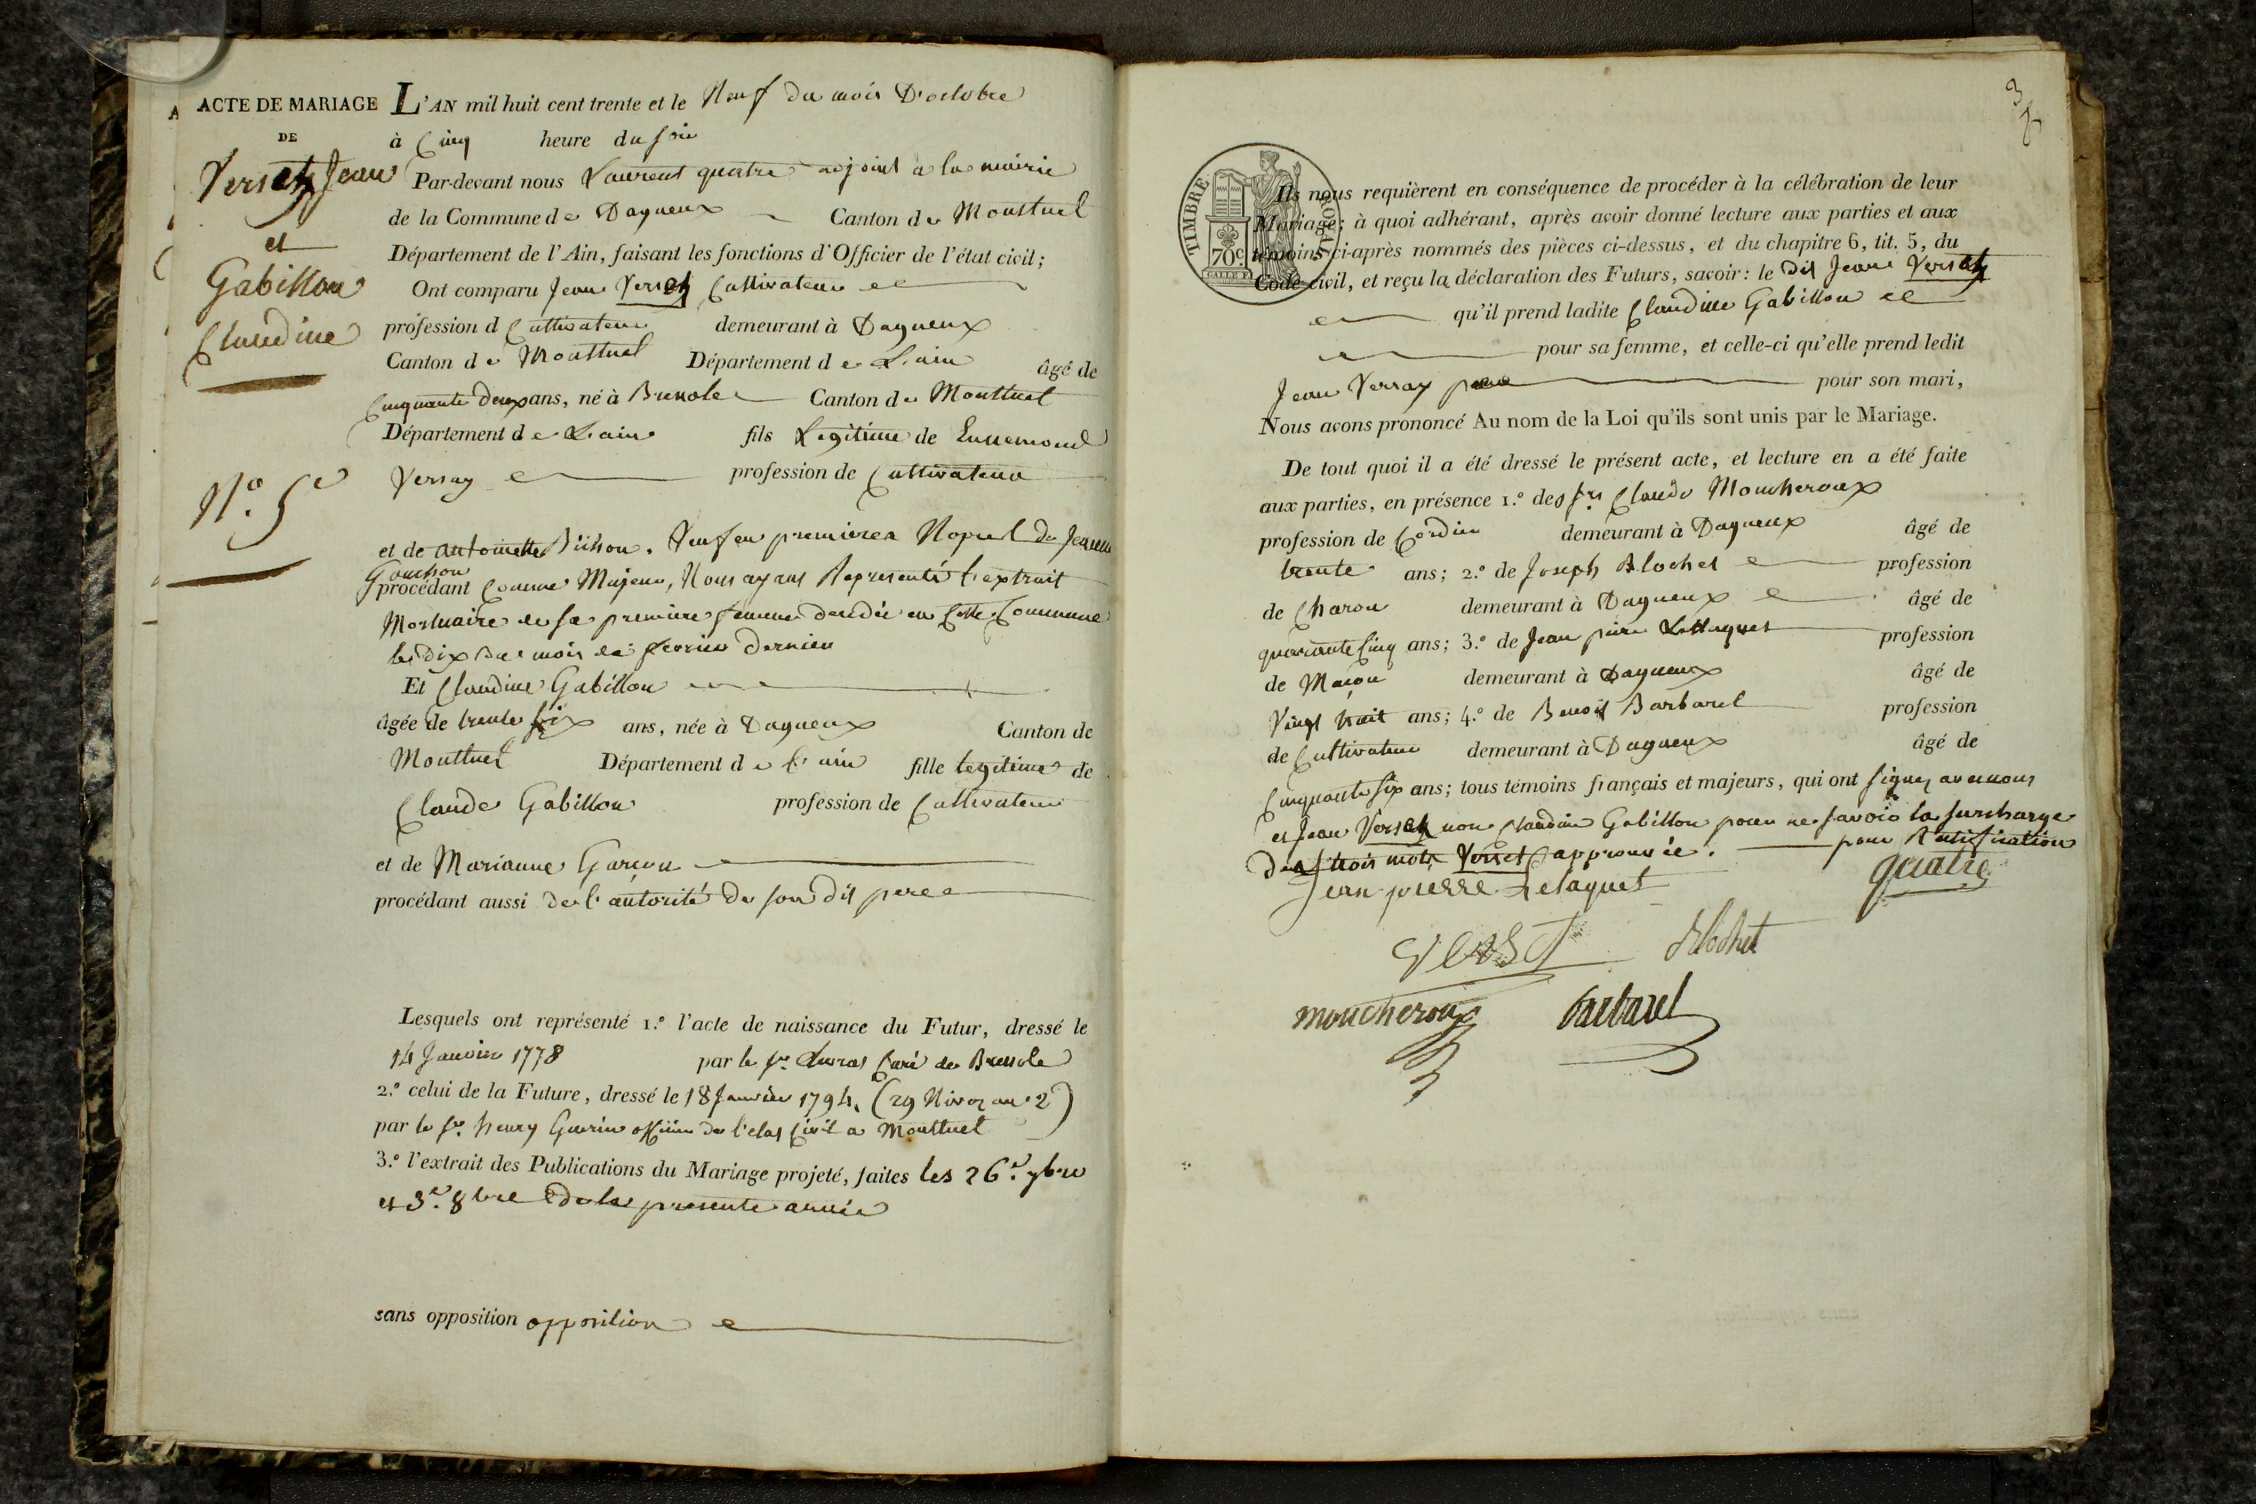 ACTE DE MARIAGE
DE
Verset Jean
et
Gabillon
Claudine
N.o 5e
L'AN mil huit cent trente et le Neuf du mois D'octobre
à Cinq heure du soir
Par-devant nous Laurent quatre adjoint a la mairie
de la Commune de Dagneux Canton de Montluel
Département de l'Ain, faisant les fonctions d'Officier de l'état civil;
Ont comparu Jean Verset Cultivateur
profession d Cultivateur demeurant à Dagneux
Canton de Montluel Département de L'ain âgé de
Cinquante deux ans, né à Bressole Canton de Montluel
Département de L'ain fils Légitime de Ennemond
Versay profession de Cultivateur
et de antoinette Bichon. Veuf en premieres Nopces de Jeanne
Gouchon
procédant Comme Majeur, Nous ayant Representé l'extrait
Mortuaire de sa premiere femme décédée en Cette Commune
le Dix du mois de fevrier dernier
Et Claudine Gabillon
âgée de trente six ans, née à Dagneux Canton de
Montluel Département de l'ain fille legitime de
Claude Gabillon profession de Cultivateur
et de Marianne Garçon
procédant aussi de l'autorité de son dit pere
Lesquels ont représenté 1.o l'acte de naissance du Futur, dressé le
14 Janvier 1778 par le sr. Curé de Bressole
2.o celui de la Future, dressé le 18 Janvier 1794. (29 Nivoz an 2)
par le sr. henry Guerin officier de l'etat Civil a Montluel
3.o l'extrait des Publications du Mariage projeté, faites les 26e. 7bre
et 3e. 8bre de la presente année
sans opposition opposition
TIMBRE ROYAL
70c.
Ils nous requièrent en conséquence de procéder à la célébration de leur
Mariage; à quoi adhérant, après avoir donné lecture aux parties et aux
témoins ci-après nommés des pièces ci-dessus, et du chapitre 6, tit. 5, du
Code civil, et reçu la déclaration des Futurs, savoir: le dit Jean Verset
qu'il prend ladite Claudine Gabillon
pour sa femme, et celle-ci qu'elle prend ledit
Jean Versay pour son mari,
Nous avons prononcé Au nom de la Loi qu'ils sont unis par le Mariage.
De tout quoi il a été dressé le présent acte, et lecture en a été faite
aux parties, en présence 1.o des srs Claude Moucheroux
profession de Cordier demeurant à Dagneux âgé de
trente ans; 2.o de Joseph Blochet profession
de Charon demeurant à Dagneux âgé de
quarante Cinq ans; 3.o de Jean piere Lettaquet profession
de Maçon demeurant à Dagneux âgé de
Vingt huit ans; 4.o de Benoit Barbarel profession
de Cultivateur demeurant à Dagneux âgé de
Cinquante six ans; tous témoins français et majeurs, qui ont signez avec nous
et Jean Verset non Claudine Gabillon pour ne savoir la surcharge
des trois mots Verset approuvée. pour Rectification
Jean pierre Letaquet quatre
verset Blochet
moucheroux Barbarel